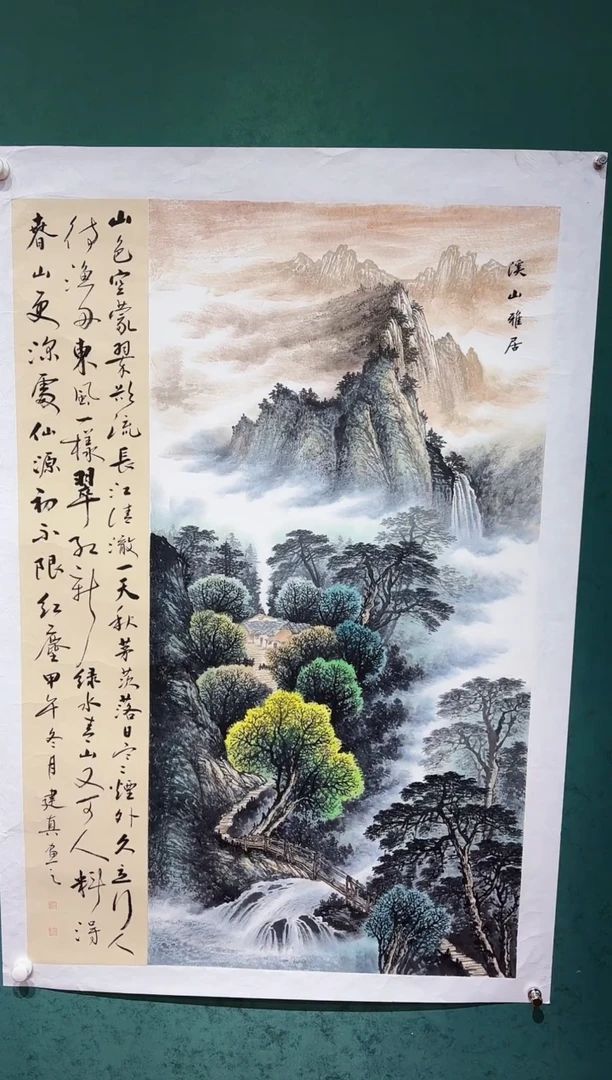 溪山雅居
山色空蒙翠欲流長江清澈一天秋茅茨落日寒煙外久立行人
待渔舟東風一樣翠紅新綠水青山又可人料得
春山更深處仙源初不限紅塵甲午冬月建真畫之